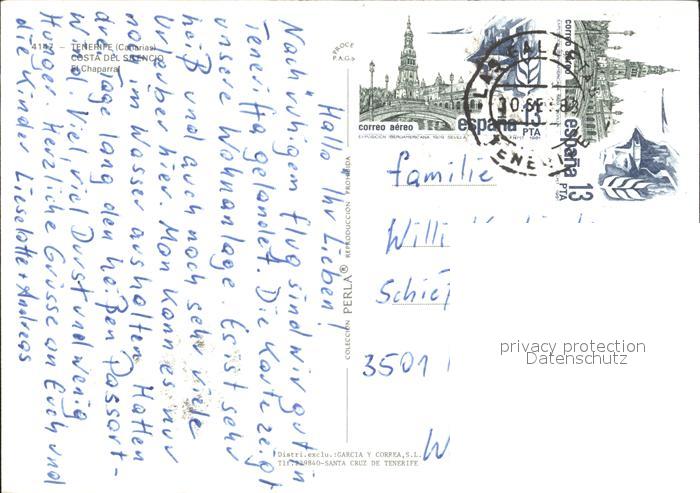 Hallo Ihr Lieben!
Nach ruhigem Flug sind wir gut in
Teneriffa gelandet. Die Karte zeigt
unsere Wohnanlage. Es ist sehr
heiß und auch noch sehr viele
Urlauber hier. Man kann es nur
noch im Wasser aushalten. Hatten
drei Tage lang den heißen Passart-
Wind. Viel, viel Durst und wenig
Hunger. Herzliche Grüsse an Euch und
die Kinder Lieselotte + Andreas
4147 – TENERIFE (Canarias)
COSTA DEL SILENCIO
El Chaparral
PROCE
P.A.G.
COLECCION PERLA® REPRODUCCION PROHIBIDA
Distri.exclu.:GARCIA Y CORREA,S.L.
Tlf.229840-SANTA CRUZ DE TENERIFE
correo aéreo
españa
13
PTA
EXPOSICION IBEROAMERICANA 1929 SEVILLA
correo aéreo
españa
13
PTA
Familie
Willi
3501
W
privacy protection
Datenschutz